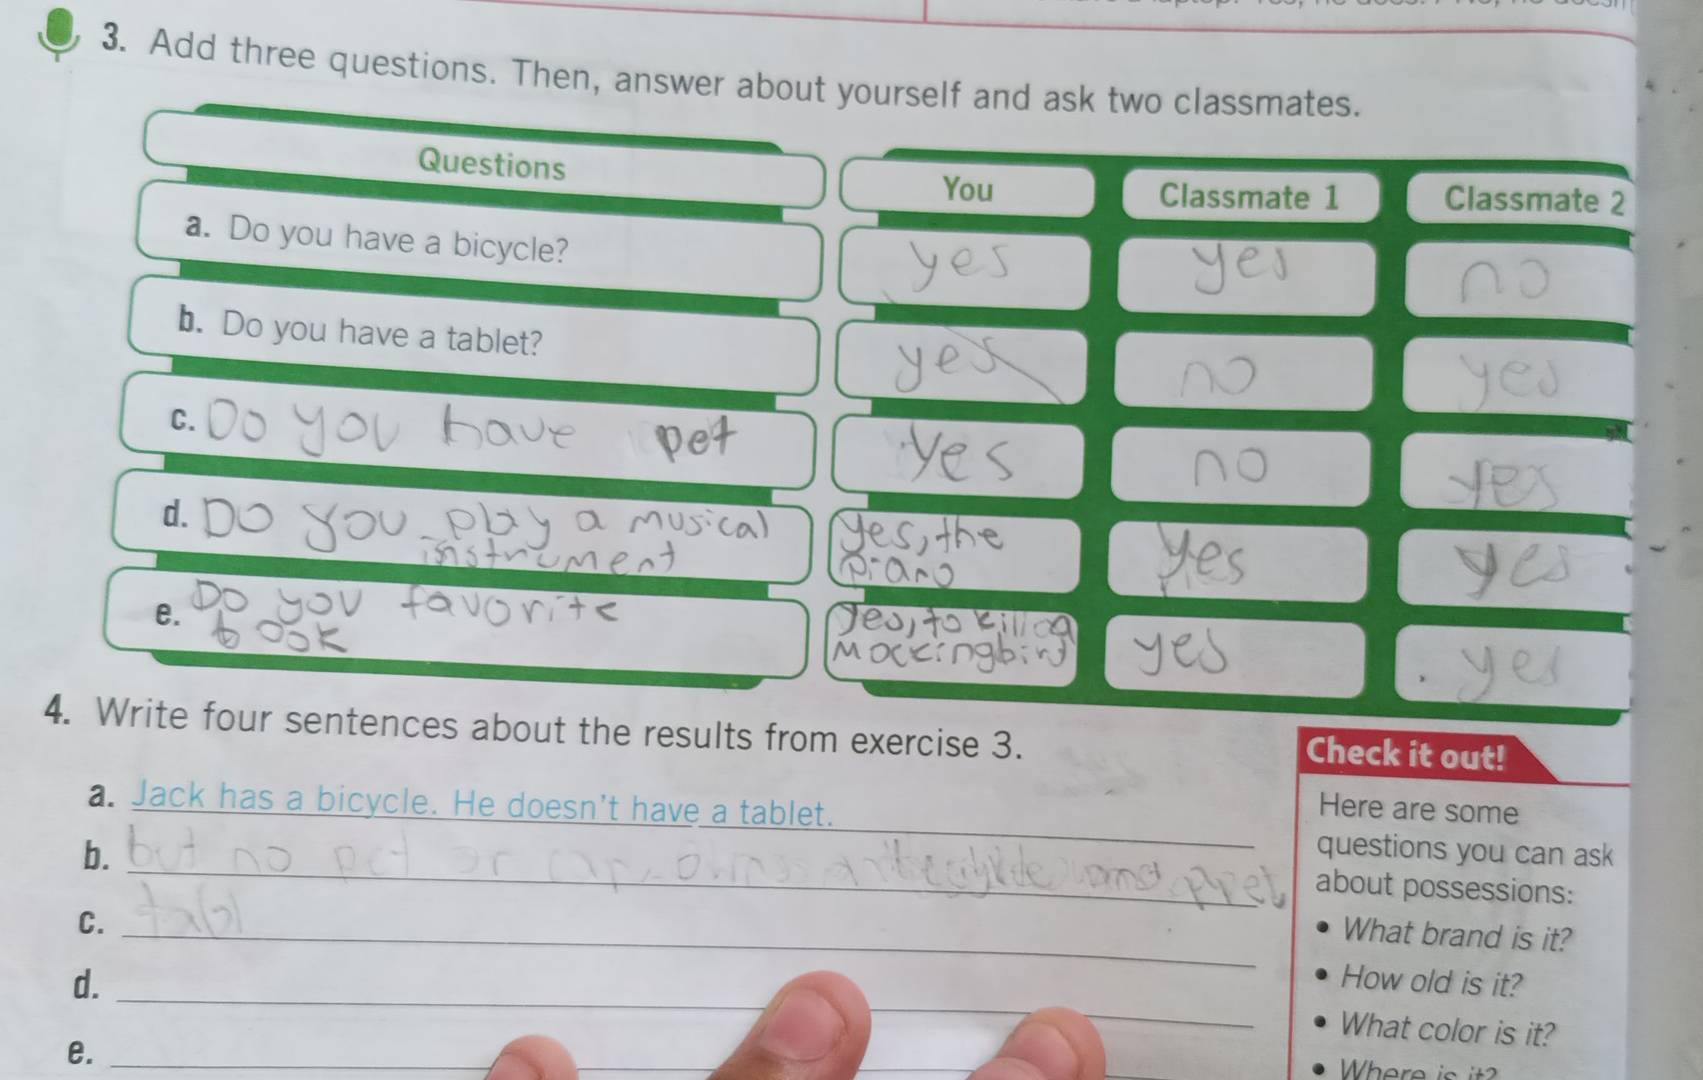 3. Add three questions. Then, answer about yourself and ask two classmates.
Questions You Classmate 1 Classmate 2
a. Do you have a bicycle? yes yes no
b. Do you have a tablet? yes no yes
c. Do you have pet yes no yes
d. DO you play a musical yes, the yes yes
instrument piano
e. Do you favorite yes, to kill a yes yes
book Mockingbird
4. Write four sentences about the results from exercise 3.
a. Jack has a bicycle. He doesn't have a tablet.
b. but no pet or
c.
d.
e.
Check it out!
Here are some
questions you can ask
about possessions:
• What brand is it?
• How old is it?
• What color is it?
• Where is it?